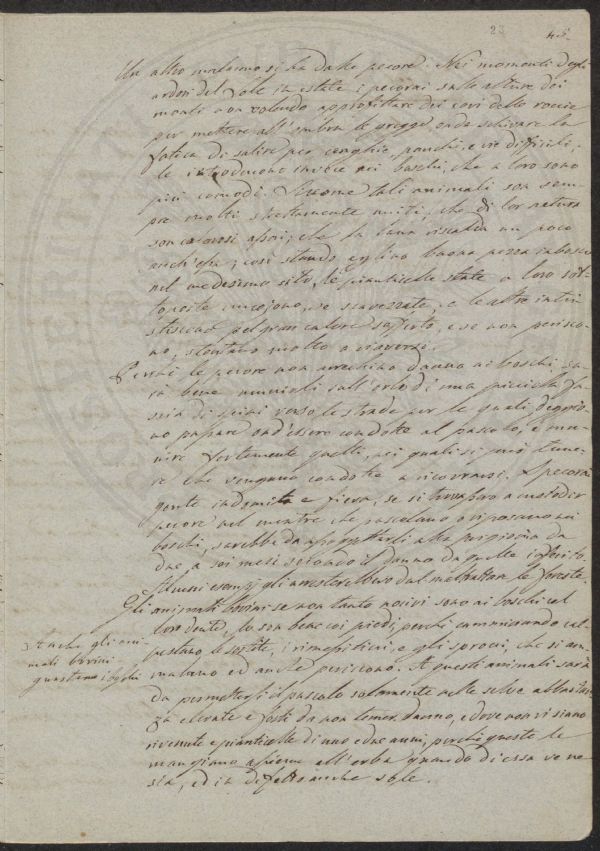 23 45
Un altro malanno si ha dalle pecore. Nei momenti degli
ardori del Sole in estate i pecorai sulle alture dei
monti non volendo approfittare dei covi delle roccie
per mettere all'ombra le gregge, onde schivare la
fatica di salire per cenghie, panchi, e vie difficili,
le introducono invece nei boschi, che a loro sono
più comodi. Siccome tali animali son sem-
pre molti strettamente uniti, che di lor natura
son calorosi assai, che la lana riscalda un poco
anch'essa; così stando eglino buona pezza in bosco
nel medesimo sito, le pianticelle state a loro sot-
toposte muojono, se scavezzate, e le altre intri-
stiscono pel gran calore sofferto, e se non perisco-
no, stentano molto a riaversi.
Perchè le pecore non arrechino danno ai boschi, sa-
rà bene munirli sull'orlo di una piccola fa-
scia di spini verso le strade per le quali deggio-
no passare ond'essere condotte al pascolo, e mu-
nire fortemente quelli, nei quali si può teme-
re che vengano condotte a ricovrarsi. I pecorai
gente indomita e fiera, se si trovassero a custodir
pecore nel mentre che pascolano o riposano nei
boschi, sarebbe da assoggettarli alla prigionia da
due a sei mesi secondo il danno da quelle inferito.
Alcuni esempj gli arresterebbero dal maltrattare le foreste.
Gli animali bovini se non tanto nocivi sono ai boschi col
loro dente, lo son bene coi piedi, perchè camminando cal-
pestano le sortite, i rimessiticci, e gli sprocci, che si am-
malano ed anche periscono. A questi animali sarà
da permettersi il pascolo solamente nelle selve abbastan-
za elevate e folti da non temer danno, e dove non vi siano
rivenute e pianticelle di uno e due anni, perchè queste le
mangiano assieme all'erba quando di essa ve ne
sia, ed in difetto anche sole.
Anche gli ani-
mali bovini
guastano i boschi